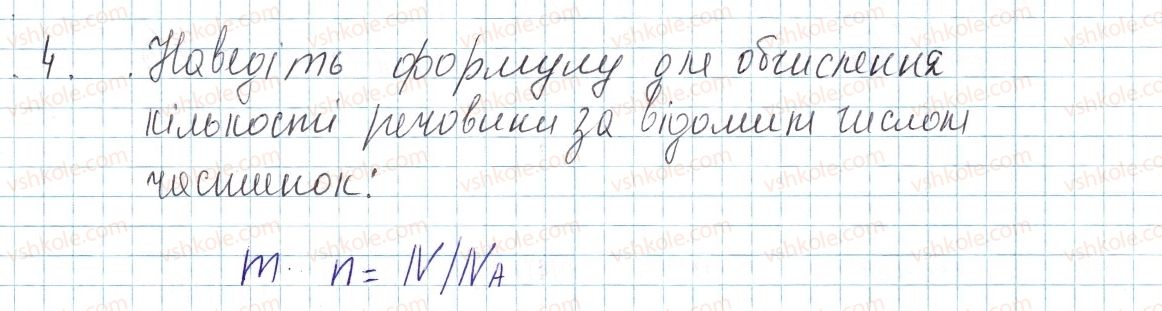 4. Наведіть формулу для обчислення
кількості речовини за відомим числом
частинок:
m n = N/NA